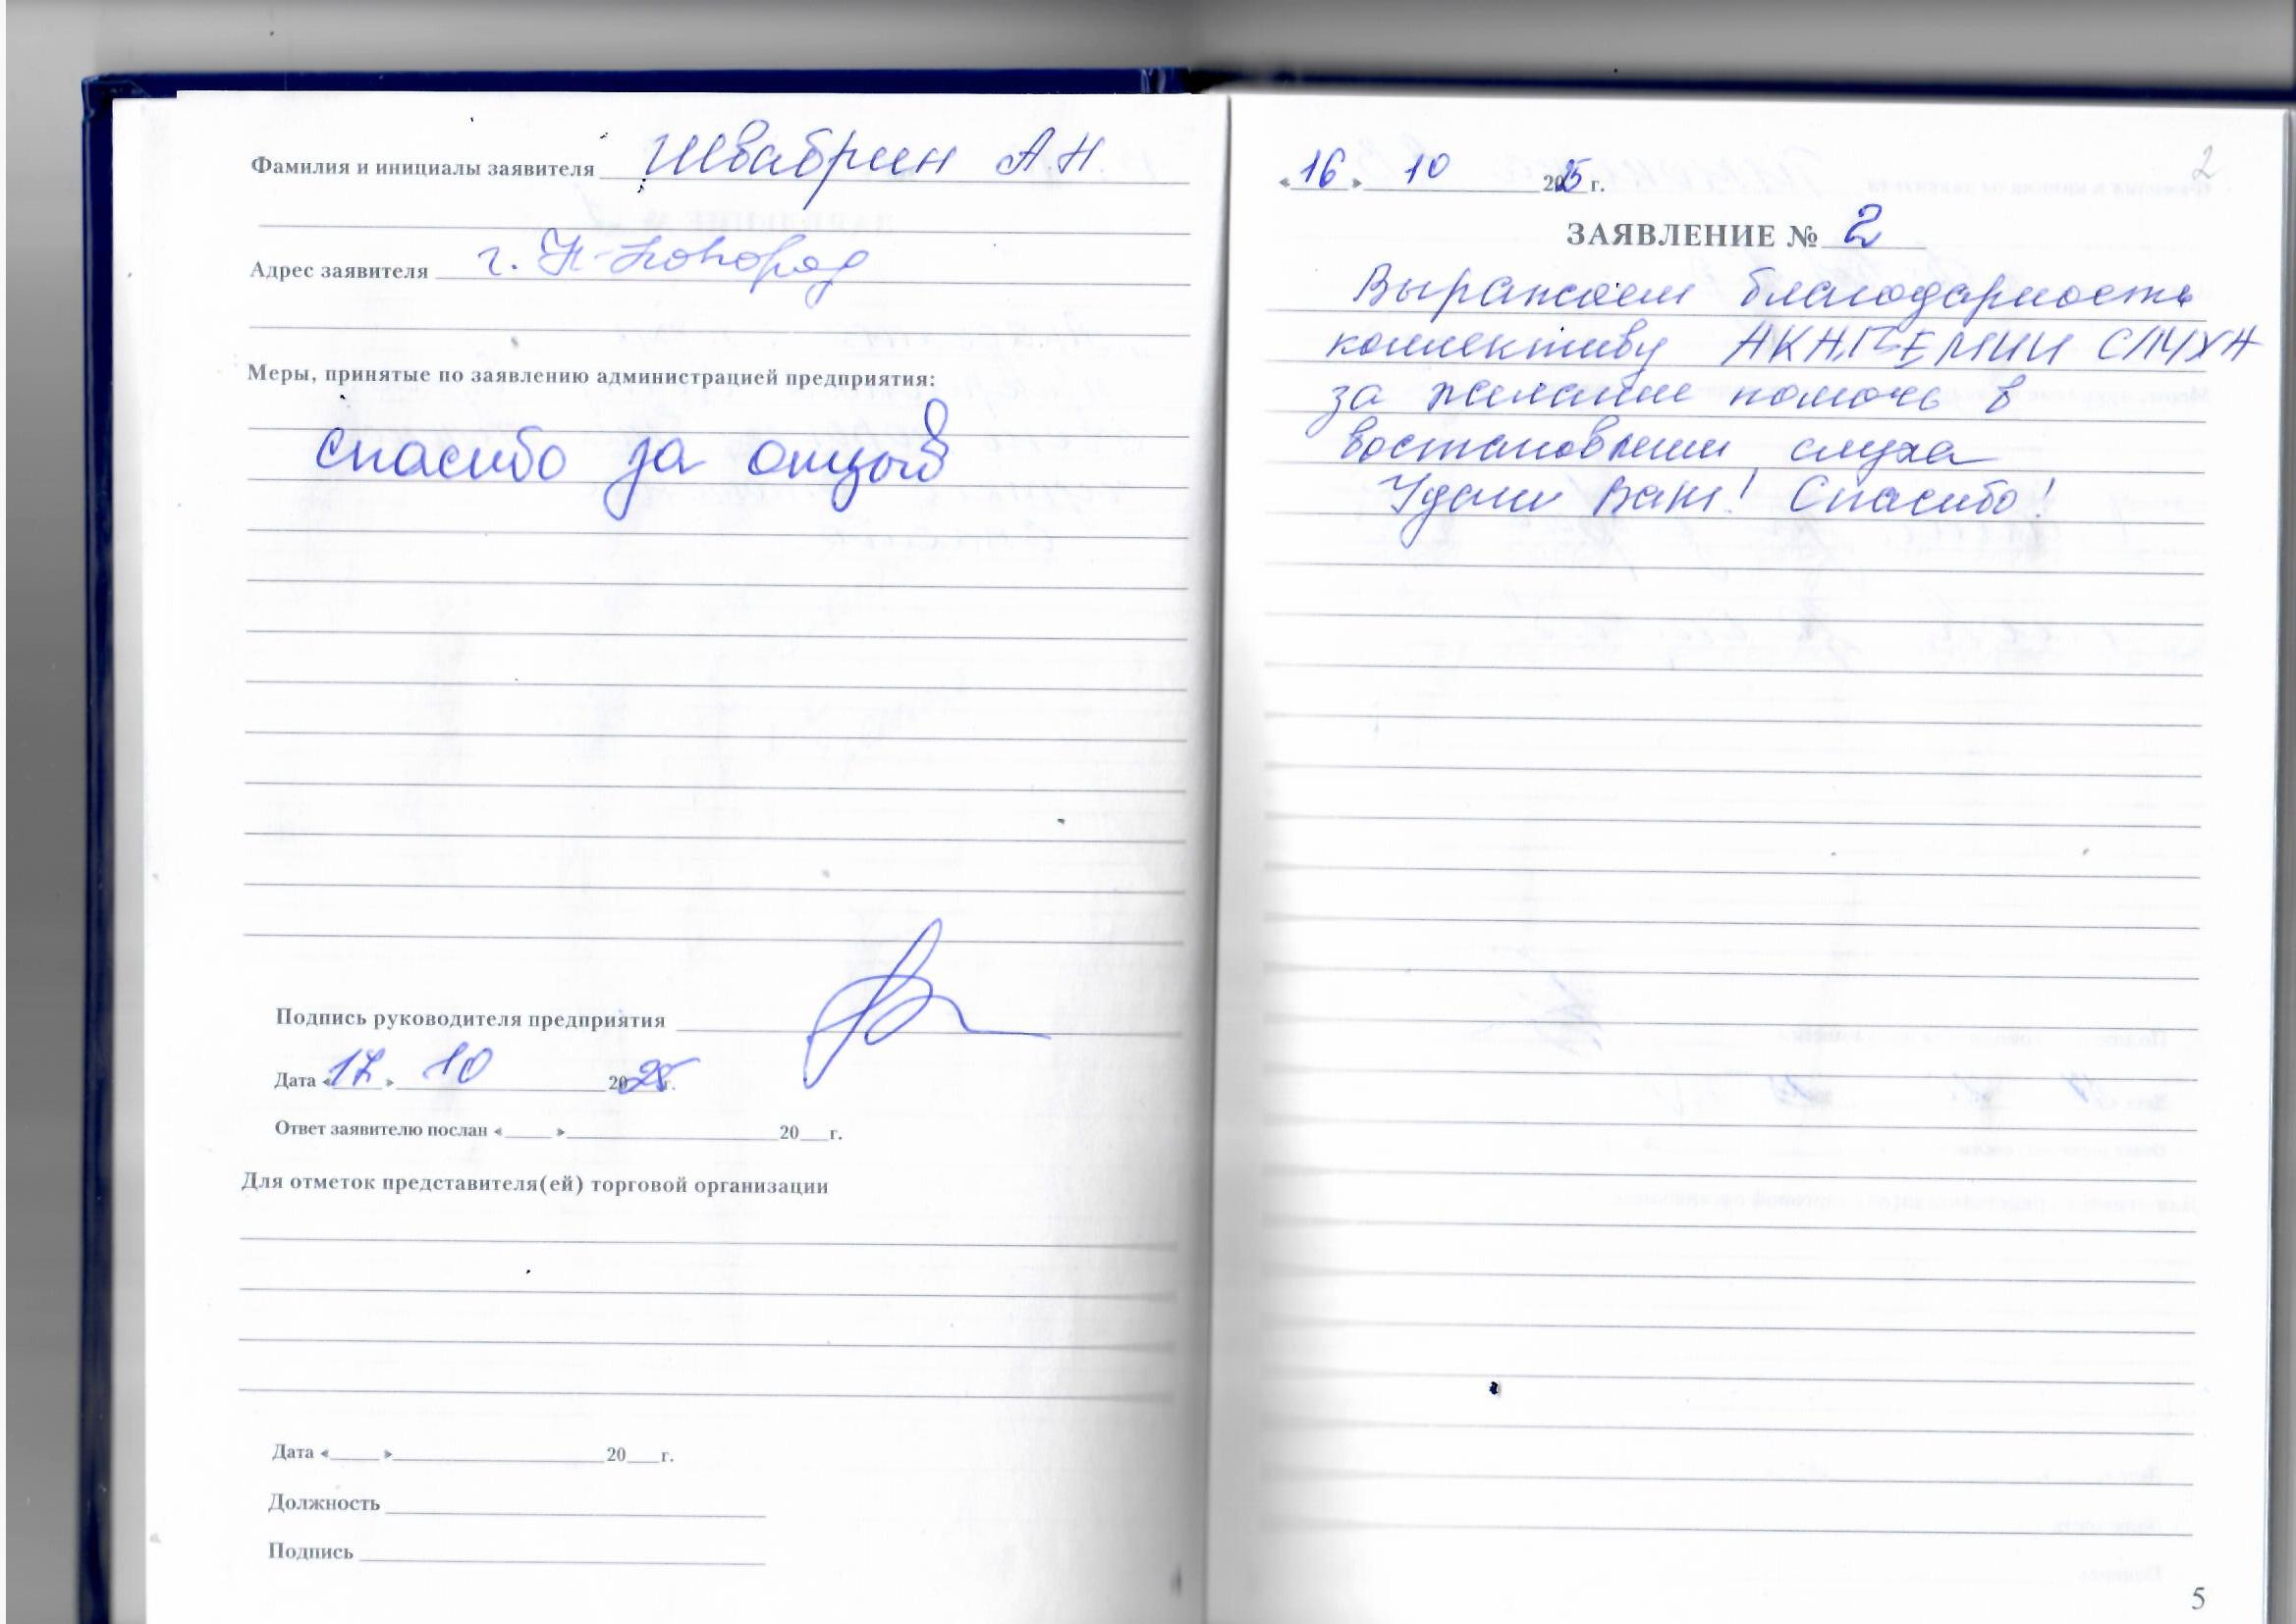 Фамилия и инициалы заявителя Швабрин А.Н
Адрес заявителя г. Н-Новгород
Меры, принятые по заявлению администрацией предприятия:
спасибо за отзыв
Подпись руководителя предприятия
Дата «17» 10 2025 г.
Ответ заявителю послан «____» ____ 20__г.
Для отметок представителя(ей) торговой организации
Дата «____» ____ 20__г.
Должность
Подпись
2
«16» 10 2025 г.
ЗАЯВЛЕНИЕ № 2
Выражаем благодарность
коллективу АКАДЕМИИ СЛУХА
за желание помочь в
востановлении слуха
Удачи Вам! Спасибо!
5